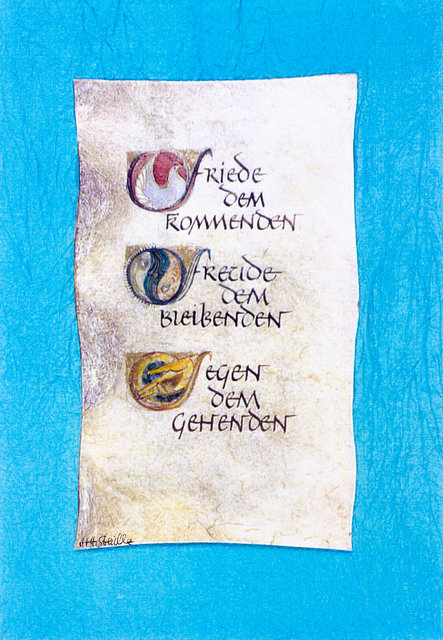 Friede
dem
kommenden
Freude
dem
bleibenden
Segen
dem
gehenden